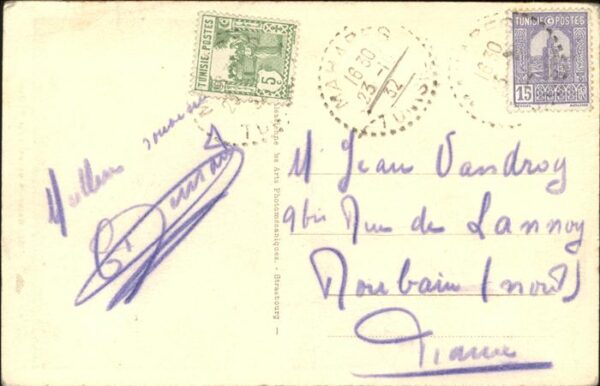 TUNISIE POSTES
5
TUNISIE POSTES
15
16 30
23 - 1
32
Meilleur souvenir
les Arts Photomécaniques. - Strasbourg -
M. Jean Vandroy
9bis Rue de Lannoy
Roubaix (nord)
France